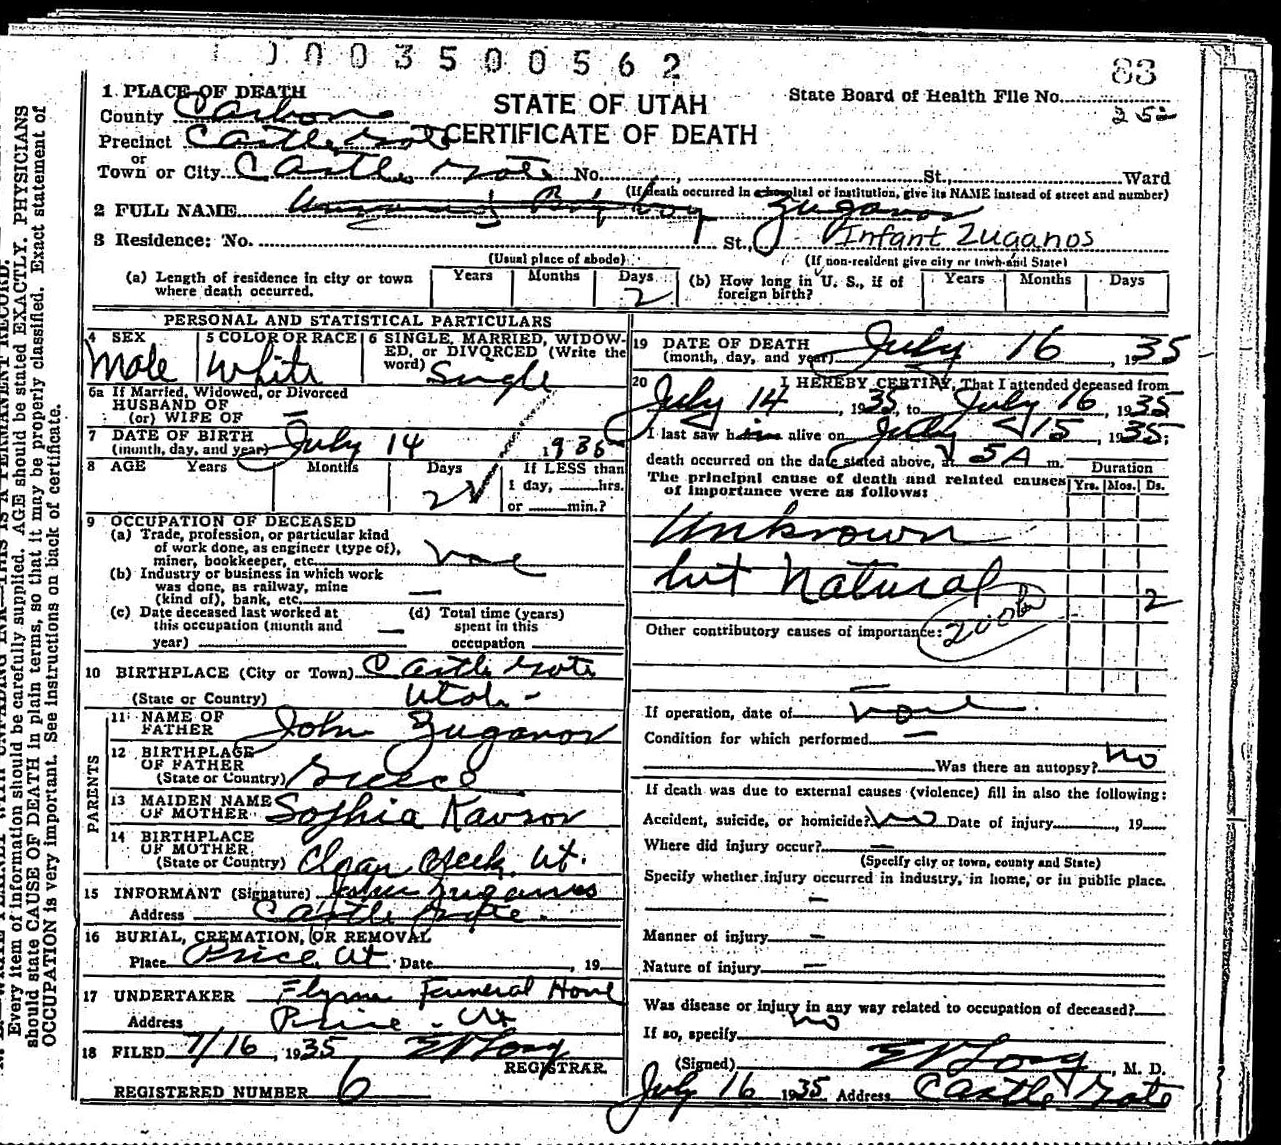 0003500562
83
1 PLACE OF DEATH
County Carbon
STATE OF UTAH
State Board of Health File No.
252
Precinct Castle Gate
CERTIFICATE OF DEATH
or
Town or City Castle Gate No. , St., Ward
(If death occurred in a hospital or institution, give its NAME instead of street and number)
2 FULL NAME Unnamed Baby boy Zuganos
3 Residence: No. St., Infant Zuganos
(Usual place of abode) (If non-resident give city or town and State)
(a) Length of residence in city or town where death occurred. Years Months Days 2
(b) How long in U. S., if of foreign birth? Years Months Days
PERSONAL AND STATISTICAL PARTICULARS
4 SEX Male
5 COLOR OR RACE White
6 SINGLE, MARRIED, WIDOWED, or DIVORCED (Write the word) Single
6a If Married, Widowed, or Divorced
HUSBAND OF
(or) WIFE OF —
7 DATE OF BIRTH
(month, day, and year) July 14 1935
8 AGE Years Months Days 2
If LESS than
1 day, hrs.
or min.?
9 OCCUPATION OF DECEASED
(a) Trade, profession, or particular kind
of work done, as engineer (type of),
miner, bookkeeper, etc. none
(b) Industry or business in which work
was done, as railway, mine
(kind of), bank, etc. —
(c) Date deceased last worked at
this occupation (month and
year) —
(d) Total time (years)
spent in this
occupation
10 BIRTHPLACE (City or Town) Castle Gate
(State or Country) Utah -
PARENTS
11 NAME OF
FATHER John Zuganos
12 BIRTHPLACE
OF FATHER
(State or Country) Greece
13 MAIDEN NAME
OF MOTHER Sophia
14 BIRTHPLACE
OF MOTHER
(State or Country) Clear Creek, Ut.
15 INFORMANT (Signature) John Zuganos
Address Castle Gate -
16 BURIAL, CREMATION, OR REMOVAL
Place Price Ut Date , 19
17 UNDERTAKER Flynn Funeral Home
Address Price - Ut
18 FILED 7/16, 1935 E V Long
REGISTRAR.
REGISTERED NUMBER 6
19 DATE OF DEATH
(month, day, and year) July 16, 1935
20 I HEREBY CERTIFY, That I attended deceased from
July 14, 1935, to July 16, 1935,
I last saw him alive on July 15, 1935;
death occurred on the date stated above, at 5A m.
The principal cause of death and related causes
of importance were as follows:
Duration
Yrs. Mos. Ds.
Unknown
but Natural
2
Other contributory causes of importance:
If operation, date of none
Condition for which performed —
Was there an autopsy? no
If death was due to external causes (violence) fill in also the following:
Accident, suicide, or homicide? no Date of injury , 19
Where did injury occur? —
(Specify city or town, county and State)
Specify whether injury occurred in industry, in home, or in public place.
—
Manner of injury —
Nature of injury —
Was disease or injury in any way related to occupation of deceased?
If so, specify no
(Signed) E V Long, M. D.
July 16 1935 Address Castle Gate
Every item of information should be carefully supplied. AGE should be stated EXACTLY. PHYSICIANS
should state CAUSE OF DEATH in plain terms, so that it may be properly classified. Exact statement of
OCCUPATION is very important. See instructions on back of certificate.